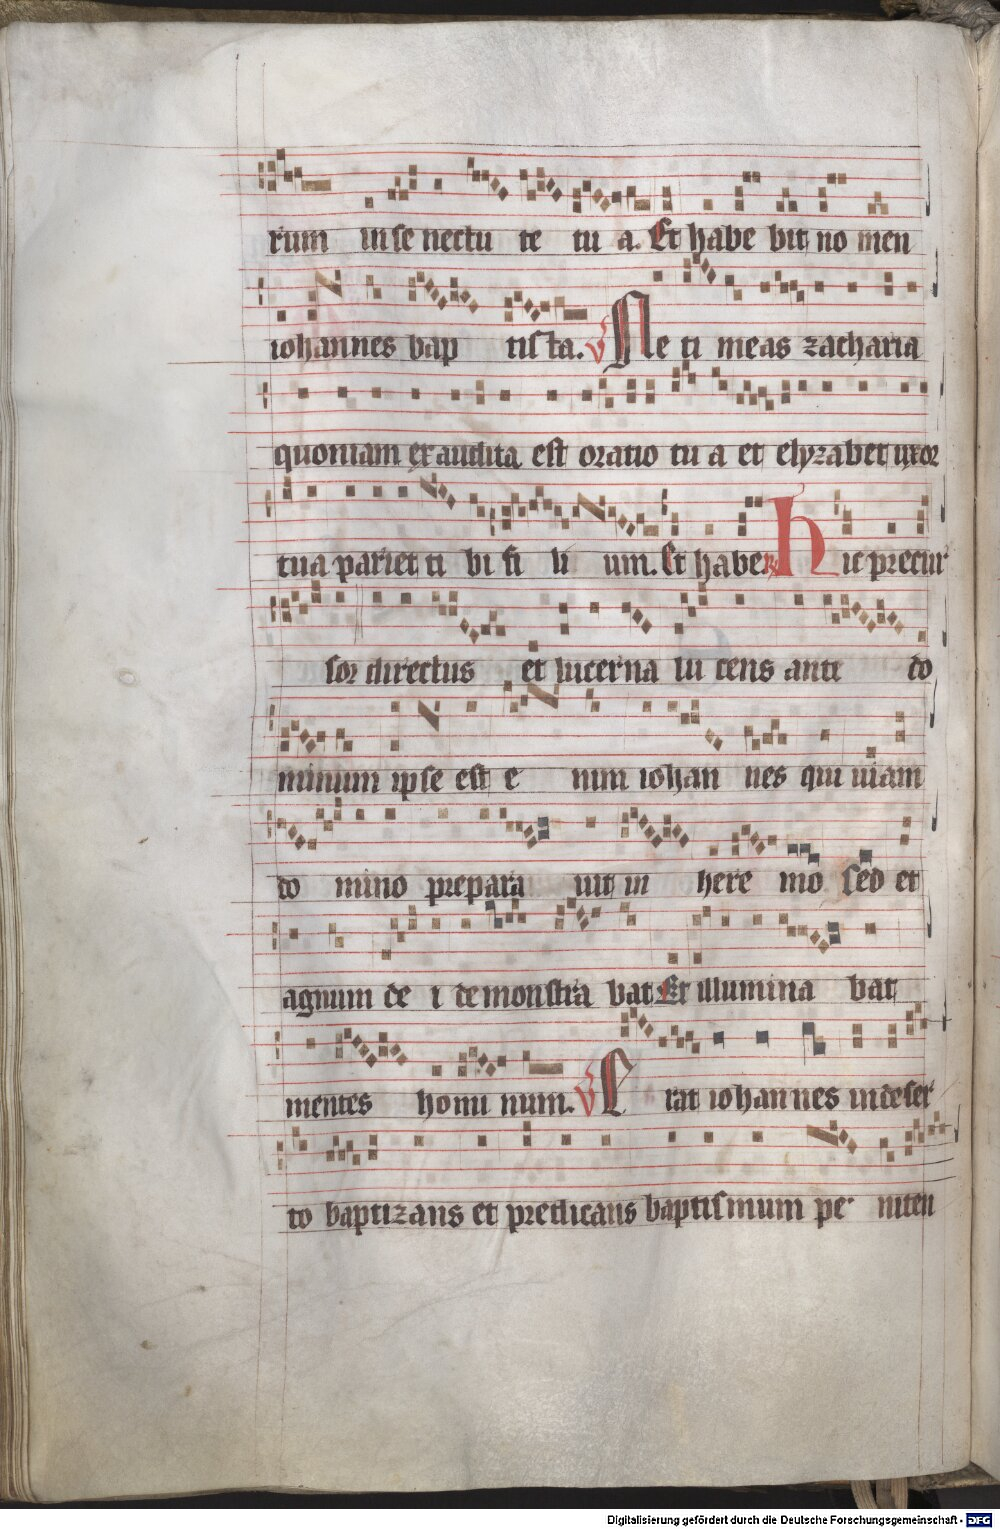 rum in se nectu te tu a. Et habe bit no men
iohannes bap tis ta. V Ne ti meas zacharia
quoniam exaudita est oratio tu a et elyzabet uxor
tua pariet ti bi fi li um. Et habe. R Hic precur
sor directus et lucerna lu cens ante do
minum ipse est e nim iohan nes qui uiam
do mino prepara uit in here mo sed et
agnum de i demonstra bat Et illumina bat
mentes homi num. V Erat iohannes in deser
to baptizans et predicans baptismum pe niten
Digitalisierung gefördert durch die Deutsche Forschungsgemeinschaft - DFG